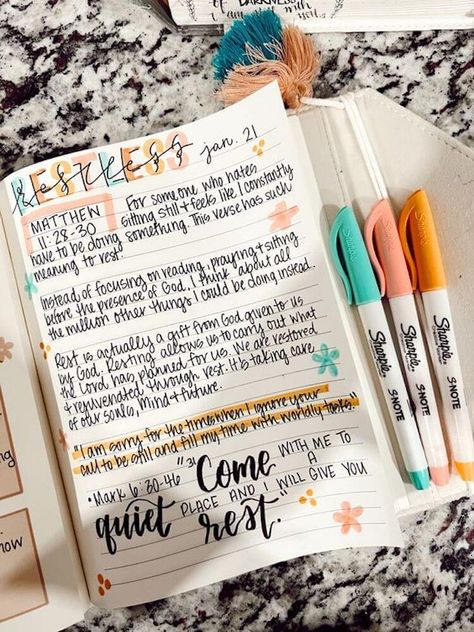 DARKNESS
with
RESTLESS
restless
jan. 21
MATTHEW
11:28-30
For someone who hates
sitting still + feels like I constantly
have to be doing something. This verse has such
meaning to rest.
Instead of focusing on reading, praying + sitting
before the presence of God, I think about all
the million other things I could be doing instead.
Rest is actually a gift from God given to us
by God. Resting allows us to carry out what
the Lord has planned for us. We are restored
& rejuvenated through rest. It's taking care
of our souls, mind + future.
"I am sorry for the times when I ignore your
call to be still and fill my time with worldly tasks."
"Mark 6:30-46 "31 Come WITH ME TO
A
quiet PLACE AND I WILL GIVE YOU
rest."
Sharpie
S·NOTE
Sharpie
S·NOTE
Sharpie
S·NOTE
Sharpie
Sharpie
Sharpie
ng
now